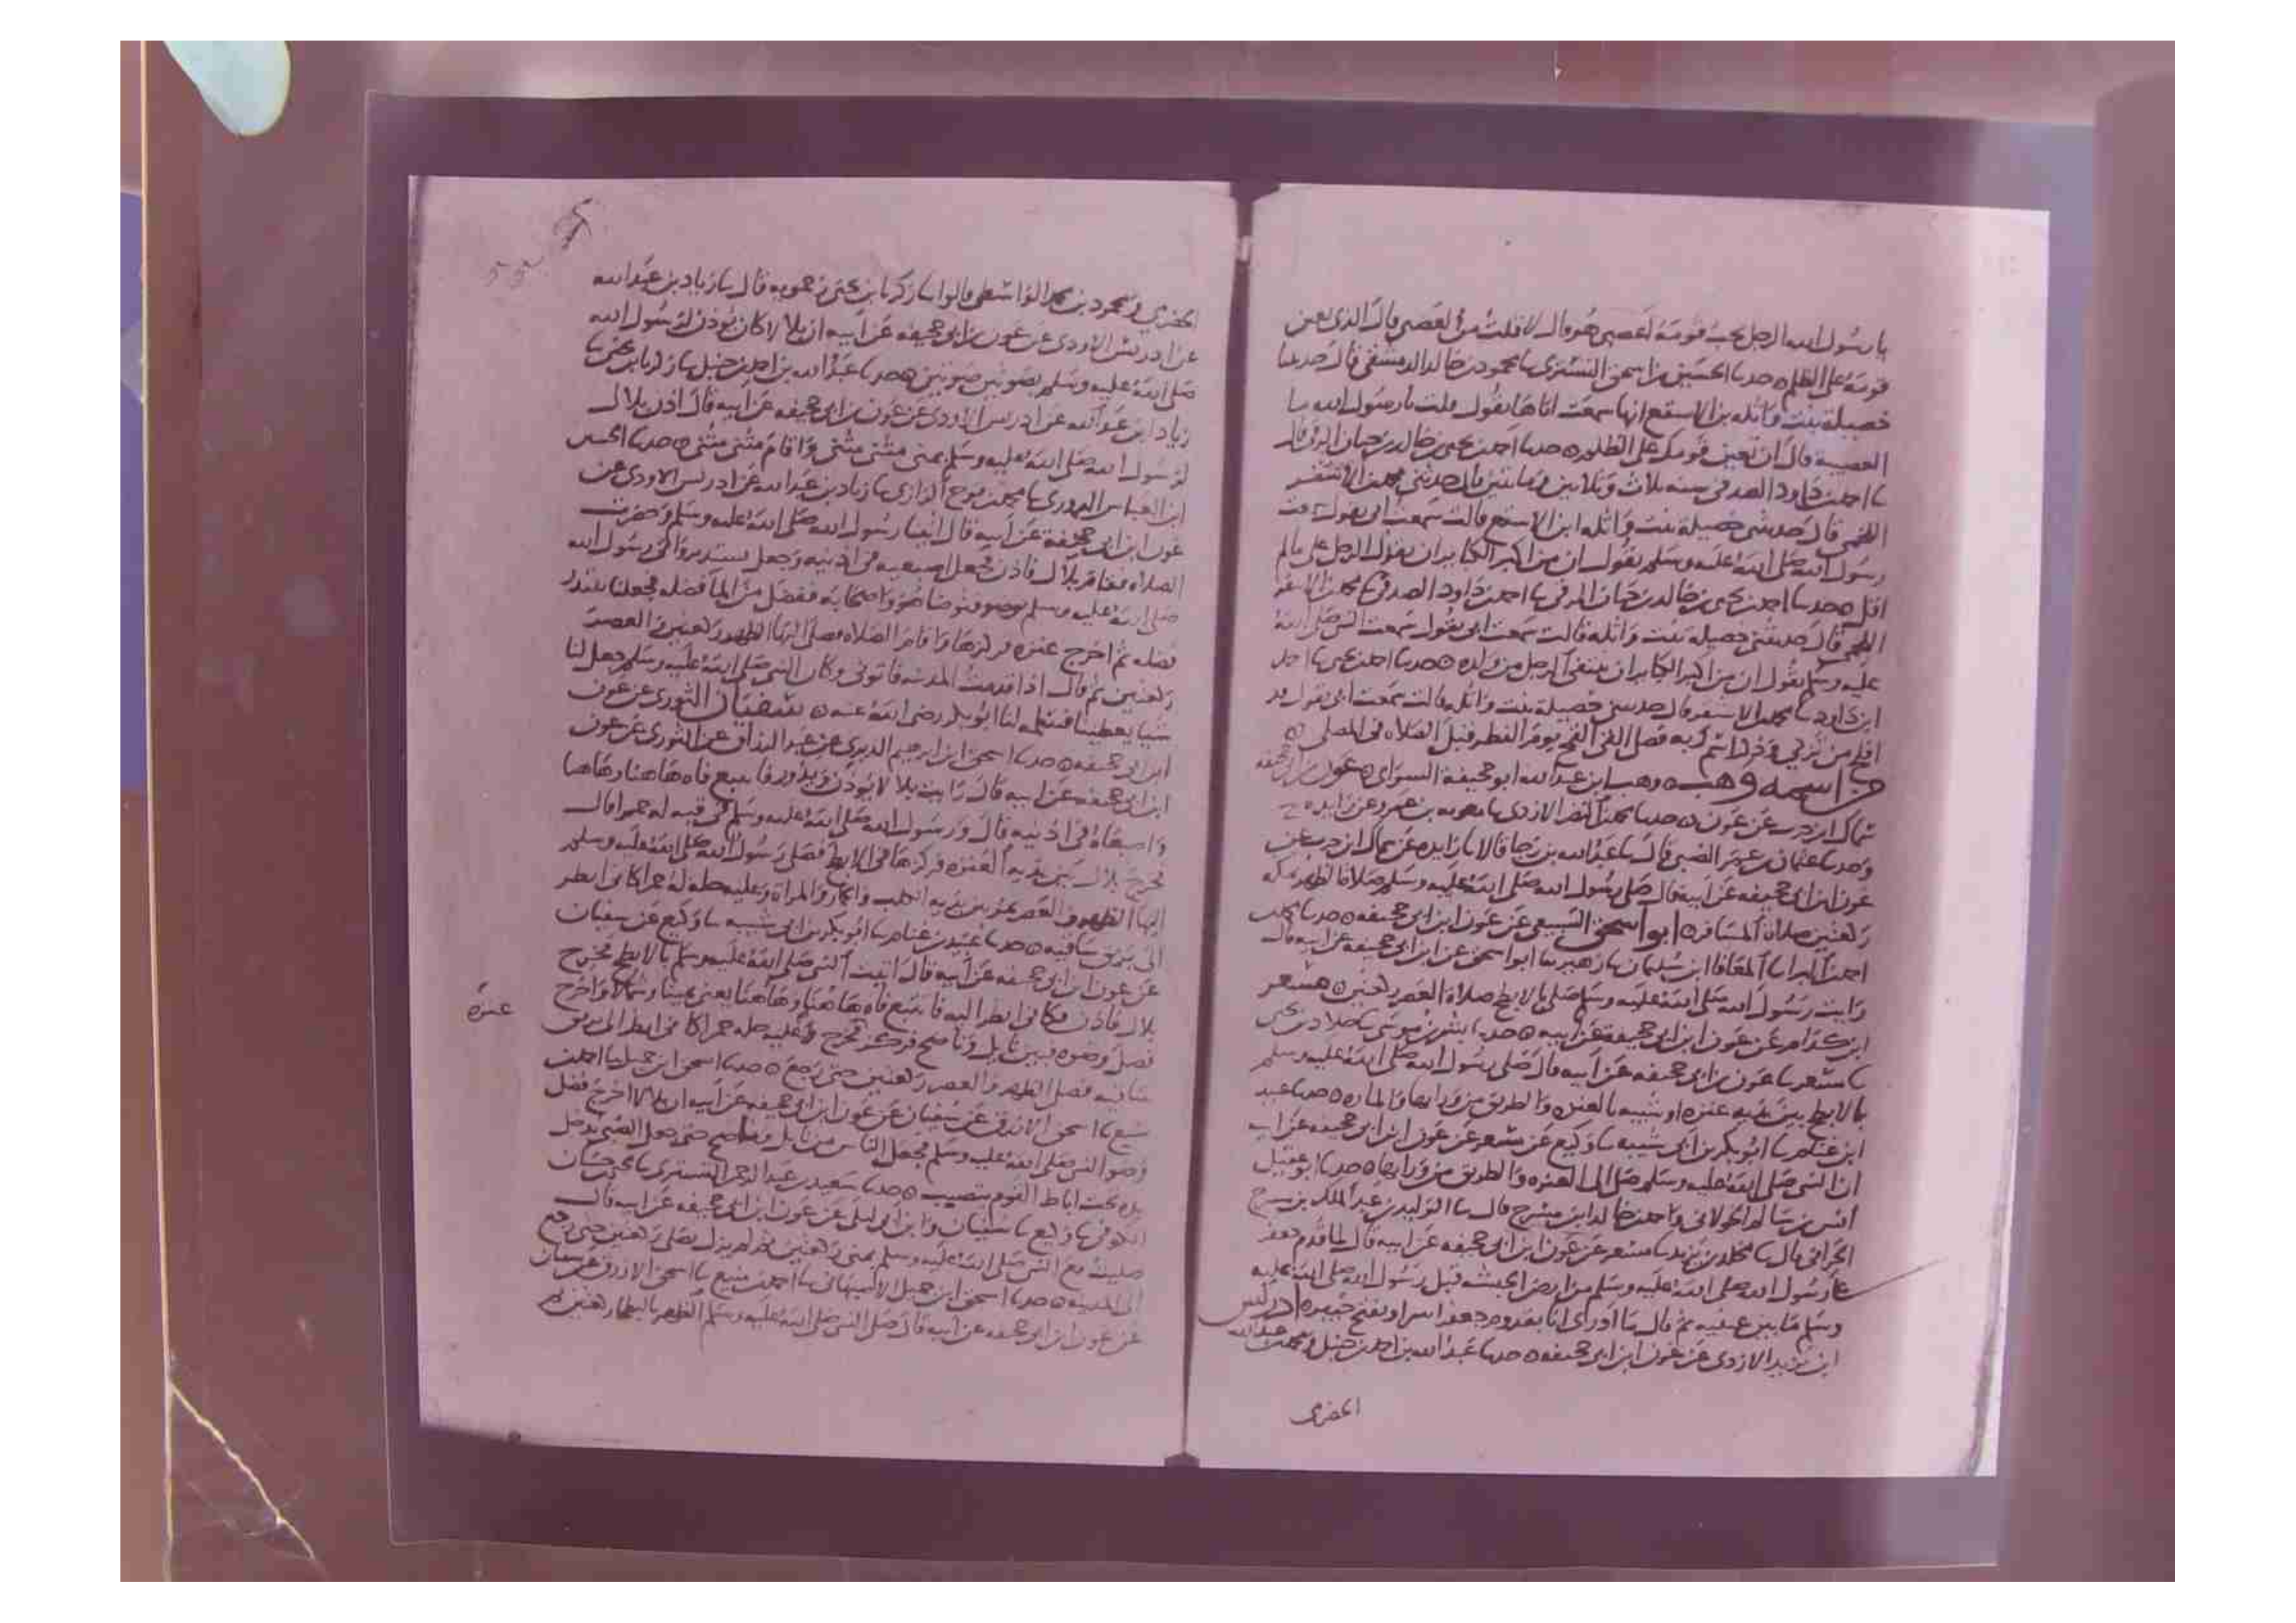 يا رسول الله الرجل يحب قومه أعصبي هو قال لا قلت من العصبي قال الذي يعين
قومه على الظلم ٥ حدثنا الحسين بن اسحق التستري ثنا محمود بن خالد الدمشقي قال حدثتنا
خصيلة بنت واثله بن الاسقع انها سمعت اباها يقول قلت يا رسول الله ما
العصبية قال ان تعين قومك على الظلم ٥ حدثنا احمد بن يحيى بن خالد بن حيان الرقي قال
ثنا احمد بن داود الصدفي سنه ثلاث وثلاثين ومائتين قال حدثني محمد بن الاشقر
اللخمي قال حدثتني خصيلة بنت واثله ابن الاسقع قالت سمعت ابي يقول سمعت
رسول الله صلى الله عليه وسلم يقول ان من اكبر الكبائر ان يقول الرجل علي ما لم
اقل ٥ حدثنا احمد بن يحيى بن خالد بن حيان الرقي ثنا احمد بن داود الصدفي ثنا محمد بن الاشقر
اللخمي قال حدثتني خصيله بنت واثله قالت سمعت ابي يقول سمعت النبي صلى الله
عليه وسلم يقول ان من اكبر الكبائر ان ينتفي الرجل من ولده ٥ حدثنا احمد بن يحيى ثنا احمد
ابن داود ثنا محمد بن الاشقر قال حدثتني خصيلة بنت واثله قالت سمعت ابي يقول قد
افلح من تزكى وذكر اسم ربه فصلى القى القمح يوم الفطر قبل الصلاه في المصلى ٥
من اسمه وهب ٥ وهب ابن عبد الله ابو جحيفة السوائي ٥ عون بن ابي جحيفه
سماك ابن حرب عن عون ٥ حدثنا محمد بن النضر الازدي ثنا معوية بن عمرو عن زايده ح
وحدثنا عثمان بن عمر الضبي قال ثنا عبد الله بن رجا قالا ثنا زايده عن سماك ابن حرب عن
عون ابن ابي جحيفه عن ابيه قال صلى رسول الله صلى الله عليه وسلم صلاة الظهر بمكه
ركعتين صلاة المسافر ٥ ابو اسحق السبيعي عن عون ابن ابي جحيفه ٥ حدثنا محمد بن
احمد بن البرا ثنا المعافا ابن سليمان ثنا زهير ثنا ابو اسحق عن ابن ابي جحيفه عن ابيه قال
رايت رسول الله صلى الله عليه وسلم صلى بالابطح صلاة العصر ركعتين ٥ مسعر
ابن كدام عن عون ابن ابي جحيفه عن ابيه ٥ حدثنا بشر بن موسى ثنا خلاد بن يحيى
ثنا مسعر ثنا عون بن ابي جحيفه عن ابيه قال صلى رسول الله صلى الله عليه وسلم
بالابطح بين يديه عنزه او شبيه بالعنزه والطريق من ورايها والماره ٥ حدثنا عبيد
ابن غنام ثنا ابو بكر بن ابي شيبه ثنا وكيع عن مسعر عن عون ابن ابي جحيفه عن ابيه
ان النبي صلى الله عليه وسلم صلى الى العنزه والطريق من ورايها ٥ حدثنا ابو عقيل
انس بن سالم الخولاني واحمد بن خالد ابن مسرح قال ثنا الوليد بن عبد الملك بن مسرح
الحراني قال ثنا مخلد بن يزيد ثنا مسعر عن عون ابن ابي جحيفه عن ابيه قال لما قدم جعفر
على رسول الله صلى الله عليه وسلم من ارض الحبشه قبل رسول الله صلى الله عليه
وسلم ما بين عينيه ثم قال ما ادري انا بقدوم جعفر اسر او بفتح خيبر ٥ ادريس
ابن يزيد الازدي عن عون ابن ابي جحيفه ٥ حدثنا عبد الله بن احمد بن حنبل ومحمد بن عبد الله
الحضرمي
الحضرمي ومحمود بن محمد الواسطي قالوا ثنا زكريا بن يحيى زحمويه قال ثنا زياد بن عبد الله
عن ادريس الاودي عن عون بن ابي جحيفه عن ابيه ان بلالا كان يوذن لرسول الله
صلى الله عليه وسلم بصوتين صوتين ٥ حدثنا عبد الله بن احمد بن حنبل ثنا زكريا بن يحيى ثنا
زياد ابن عبد الله عن ادريس الاودي عن عون بن ابي جحيفه عن ابيه قال اذن بلال
لرسول الله صلى الله عليه وسلم بمنى مثنى مثنى واقام مثنى مثنى ٥ حدثنا الحسن
ابن العباس الرازي ثنا محمد بن نوح الرازي ثنا زياد بن عبد الله عن ادريس الاودي عن
عون ابن ابي جحيفة عن ابيه قال اتينا رسول الله صلى الله عليه وسلم وحضرت
الصلاه فقام بلال فاذن فجعل اصبعيه في اذنيه وجعل يستدير واتي رسول الله
صلى الله عليه وسلم بوضو فتوضا هو واصحابه ففضل من الما فضله فجعلنا نبتدر
فضله ثم اخرج عنزه فركزها واقام الصلاه فصلى اليها الظهر ركعتين والعصر
ركعتين ثم قال اذا قدمت المدينه فاتوني وكان النبي صلى الله عليه وسلم جعل لنا
شيا يعطينا فتممه لنا ابو بكر رضي الله عنه ٥ سفيان الثوري عن عون
ابن ابي جحيفه ٥ حدثنا اسحق ابن ابرهيم الدبري عن عبد الرزاق عن الثوري عن عون
ابن ابي جحيفه عن ابيه قال رايت بلالا يوذن ويدور فاتتبع فاه هاهنا وهاهنا
واصبعاه في اذنيه قال ورسول الله صلى الله عليه وسلم في قبه له حمرا قال
فخرج بلال بين يديه العنزه فركزها في الابطح فصلى رسول الله صلى الله عليه وسلم
اليها الظهر والعصر يمر بين يديه الكلب والحمار والمراه وعليه حله له حمرا كاني انظر
الى بريق ساقيه ٥ حدثنا عبيد بن غنام ثنا ابو بكر بن ابي شيبه ثنا وكيع عن سفيان
عن عون ابن ابي جحيفه عن ابيه قال اتيت النبي صلى الله عليه وسلم بالابطح فخرج
بلال فاذن فكاني انظر اليه فاتتبع فاه هاهنا وهاهنا يعني يمينا وشمالا واخرج
عنزه
فضل وضوه فبين نايل وناضح فركز فخرج وعليه حله حمرا كاني انظر الى بريق
ساقيه فصلى الظهر والعصر ركعتين حتى رجع ٥ حدثنا اسحق ابن جميل ثنا احمد بن
منيع ثنا اسحق الازرق عن سفيان عن عون ابن ابي جحيفه عن ابيه ان بلالا اخرج فضل
وضو النبي صلى الله عليه وسلم فجعل الناس من نايل وناضح حتى جعل الصبي يدخل
يده تحت اباط القوم فتصيب ٥ حدثنا سعيد بن عبد الرحمن التستري ثنا محمد بن حسان
الكوفي ثنا وكيع ثنا سفيان وابن ابي ليلى عن عون ابن ابي جحيفه عن ابيه قال
صليت مع النبي صلى الله عليه وسلم بمنى ركعتين ثم لم يزل يصلي ركعتين حتى رجع
الى المدينه ٥ حدثنا اسحق ابن جميل الاصبهاني ثنا احمد بن منيع ثنا اسحق الازرق عن سفيان
عن عون ابن ابي جحيفه عن ابيه قال صلى النبي صلى الله عليه وسلم الظهر بالبطحا ركعتين ثم